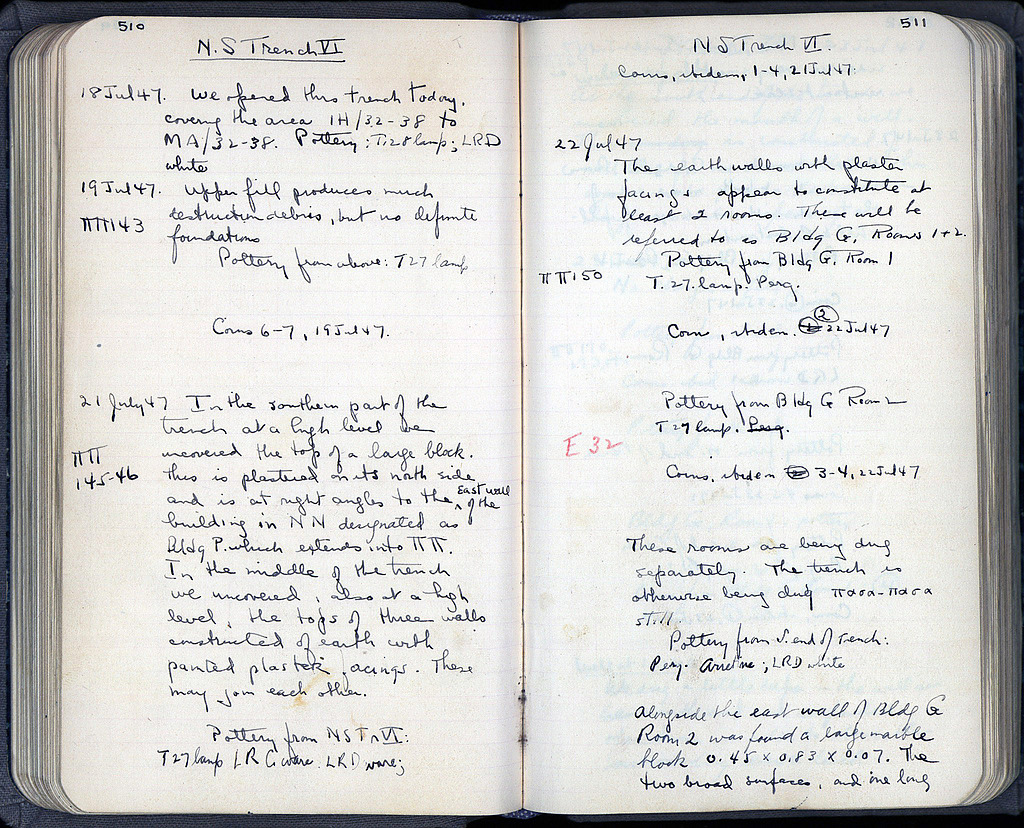 510
N.S Trench VI
18 Jul 47. We opened this trench today,
covering the area IH/32-38 to
MA/32-38. Pottery: T.28 lamp; LRD
white
19 Jul 47. Upper fill produces much
destruction debris, but no definite
ΠΠ143
foundations
Pottery from above: T27 lamp
Coins 6-7, 19 Jul 47.
21 July 47 In the southern part of the
trench at a high level we
uncovered the top of a large block.
ΠΠ
145-46
This is plastered on its north side
and is at right angles to the east wall of the
building in NN designated as
Bldg P. which extends into ΠΠ.
In the middle of the trench
we uncovered, also at a high
level, the tops of three walls
constructed of earth with
painted plaster facings. These
may join each other.
Pottery from NSTr VI:
T27 lamp LR C ware. LRD ware;
511
NS Trench VI.
Coins, ibidem, 1-4, 21 Jul 47.
22 Jul 47
The earth walls with plaster
facings appear to constitute at
least 2 rooms. These will be
referred to as Bldg G, Rooms 1+2.
Pottery from Bldg G. Room 1
ΠΠ150
T.27. lamp. Perg.
Coin, ibidem. 2 22 Jul 47
Pottery from Bldg G Room 2
T 27 lamp. Perg.
E 32
Coins, ibidem 3-4, 22 Jul 47
These rooms are being dug
separately. The trench is
otherwise being dug πασα-πασα
still
Pottery from S. end of trench:
Perg. Arretine; LRD white
Alongside the east wall of Bldg G
Room 2 was found a large marble
block 0.45 x 0.83 x 0.07. The
two broad surfaces, and one long